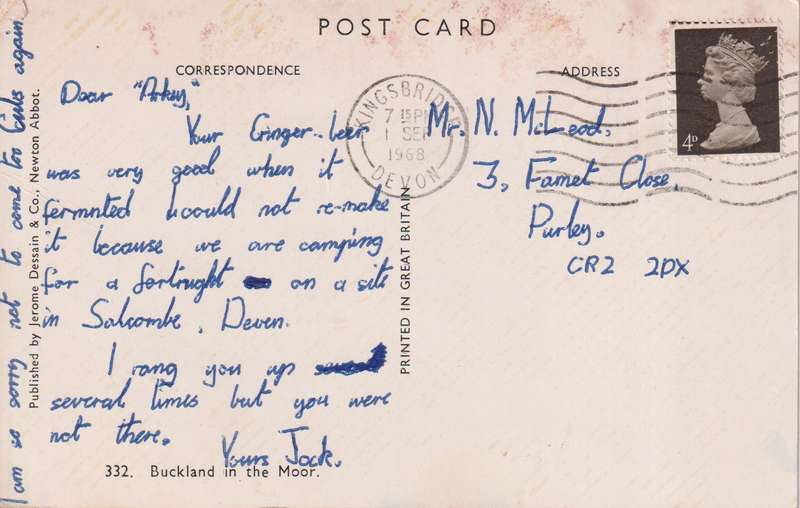 POST CARD
CORRESPONDENCE
ADDRESS
Dear "Arkey,"
Your Ginger-beer
was very good when it
fermnted I could not re-make
it because we are camping
for a fortnught on a site
in Salcombe, Deven.
I rang you up
several times but you were
not there.
Yours Jock.
I am so sorry not to come too Cubs again
Published by Jerome Dessain & Co., Newton Abbot.
332. Buckland in the Moor.
PRINTED IN GREAT BRITAIN
KINGSBRIDGE
7 15 PM
1 SEP
1968
DEVON
4D
Mr. N. McLeod,
3, Famet Close,
Purley.
CR2 2DX